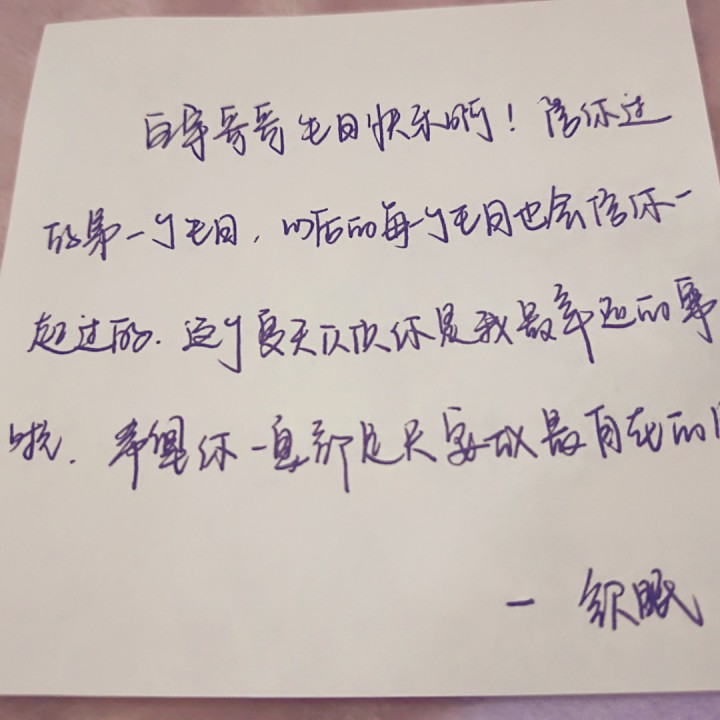 白宇哥哥生日快乐啊！陪你过
的第一个生日，以后的每个生日也会陪你一
起过的．这个夏天认识你是我最幸运的事
啦．希望你一直都是天真做最自在的